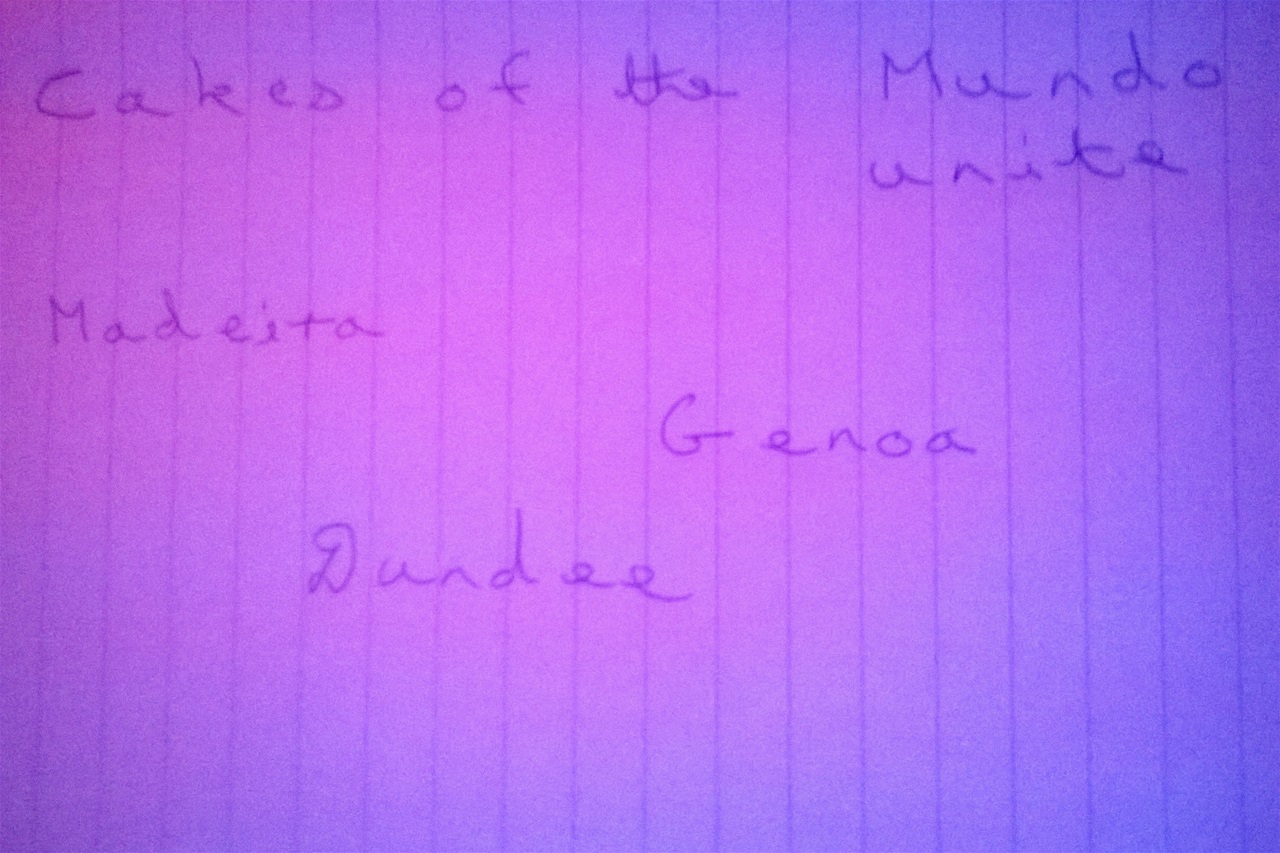 Cakes of the Mundo
unite
Madeira
Genoa
Dundee